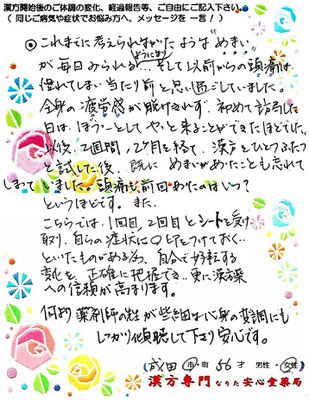 漢方開始後のご体調の変化、経過報告等、ご自由にご記入下さい。
( 同じご病気や症状でお悩み方へ、メッセージを 一言 / )
◎これまでに考えられなかったような めまい
が毎日みられる ようになり…そして以前からの頭痛は
慣れてしまい 当たり前と思い過ごしていました。
全身の疲労感が抜けきれず、初めて訪れた
日は、ぼうーとして やっと来ることができたほどでした。
以後、2週間、2ヶ月を経て、漢方をひとつふたつ
と試した後、既に めまいがあったことも忘れて
しまっていました。頭痛も前回あったのはいつ?
というほどです。また、
こちらでは、1回目、2回目とシートを受け
取り、自らの症状に○印をつけておく…
といったものがある為、自分で好転する
変化を、正確に把握でき…更に漢方薬
への信頼が高まります。
何より薬剤師の先生が些細な心身の変調にも
しっかり傾聴して下さり安心です。
(成田 市・町 56才 男性・女性)
漢方専門 なりた安心堂薬局